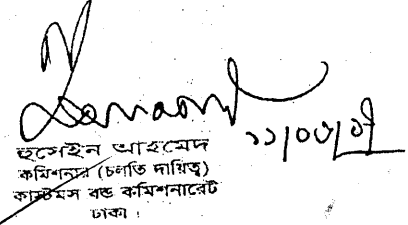 ১১/০৩/০৭
হুসেইন আহমেদ
কমিশনার (চলতি দায়িত্ব)
কাস্টমস বন্ড কমিশনারেট
ঢাকা।